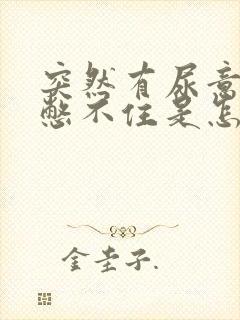 突然有尿意
憋不住是怎
金圭子.